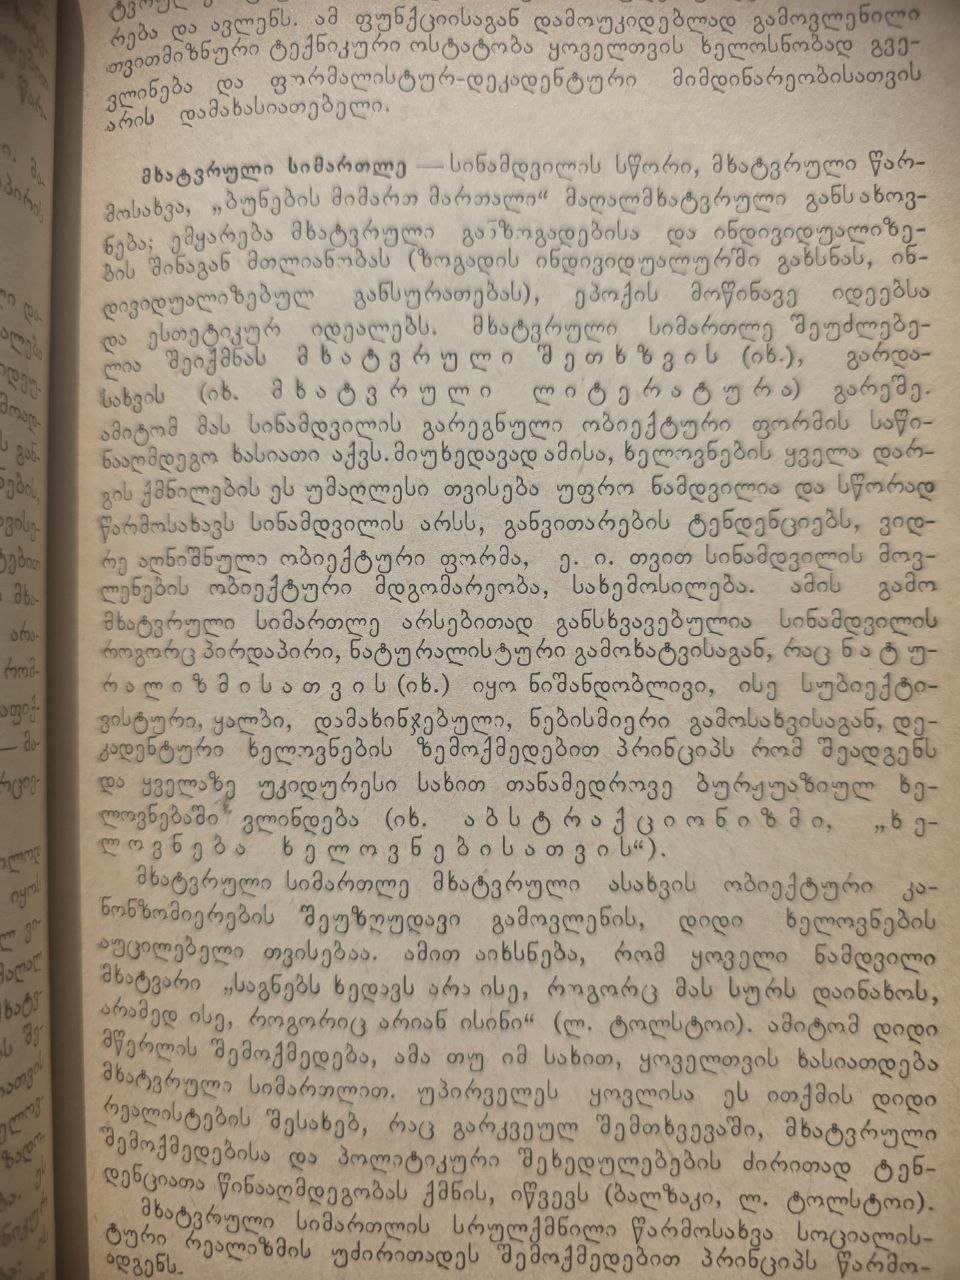 რება და ავლენს. ამ ფუნქციისაგან დამოუკიდებლად გამოვლენილი
თვითმიზნური ტექნიკური ოსტატობა ყოველთვის ხელოსნობად გვე-
ვლინება და ფორმალისტურ-დეკადენტური მიმდინარეობისათვის
არის დამახასიათებელი.
მხატვრული სიმართლე — სინამდვილის სწორი, მხატვრული წარ-
მოსახვა, „ბუნების მიმართ მართალი“ მაღალმხატვრული განსახოვ-
ნება; ემყარება მხატვრული განზოგადებისა და ინდივიდუალიზე-
ბის შინაგან მთლიანობას (ზოგადის ინდივიდუალურში გახსნას, ინ-
დივიდუალიზებულ განსურათებას), ეპოქის მოწინავე იდეებსა
და ესთეტიკურ იდეალებს. მხატვრული სიმართლე შეუძლებე-
ლია შეიქმნას მხატვრული შეთხზვის (იხ.), გარდა-
სახვის (იხ. მხატვრული ლიტერატურა) გარეშე.
ამიტომ მას სინამდვილის გარეგნული ობიექტური ფორმის საწი-
ნააღმდეგო ხასიათი აქვს. მიუხედავად ამისა, ხელოვნების ყველა დარ-
გის ქმნილების ეს უმაღლესი თვისება უფრო ნამდვილია და სწორად
წარმოსახავს სინამდვილის არსს, განვითარების ტენდენციებს, ვიდ-
რე აღნიშნული ობიექტური ფორმა, ე. ი. თვით სინამდვილის მოვ-
ლენების ობიექტური მდგომარეობა, სახემოსილება. ამის გამო
მხატვრული სიმართლე არსებითად განსხვავებულია სინამდვილის
როგორც პირდაპირი, ნატურალისტური გამოხატვისაგან, რაც ნატუ-
რალიზმისათვის (იხ.) იყო ნიშანდობლივი, ისე სუბიექტი-
ვისტური, ყალბი, დამახინჯებული, ნებისმიერი გამოსახვისაგან, დე-
კადენტური ხელოვნების ზემოქმედებით პრინციპს რომ შეადგენს
და ყველაზე უკიდურესი სახით თანამედროვე ბურჟუაზიულ ხე-
ლოვნებაში ვლინდება (იხ. აბსტრაქციონიზმი, „ხე-
ლოვნება ხელოვნებისათვის“).
მხატვრული სიმართლე მხატვრული ასახვის ობიექტური კა-
ნონზომიერების შეუზღუდავი გამოვლენის, დიდი ხელოვნების
აუცილებელი თვისებაა. ამით აიხსნება, რომ ყოველი ნამდვილი
მხატვარი „საგნებს ხედავს არა ისე, როგორც მას სურს დაინახოს,
არამედ ისე, როგორიც არიან ისინი“ (ლ. ტოლსტოი). ამიტომ დიდი
მწერლის შემოქმედება, ამა თუ იმ სახით, ყოველთვის ხასიათდება
მხატვრული სიმართლით. უპირველეს ყოვლისა ეს ითქმის დიდი
რეალისტების შესახებ, რაც გარკვეულ შემთხვევაში, მხატვრული
შემოქმედებისა და პოლიტიკური შეხედულებების ძირითად ტენ-
დენციათა წინააღმდეგობას ქმნის, იწვევს (ბალზაკი, ლ. ტოლსტოი).
მხატვრული სიმართლის სრულქმნილი წარმოსახვა სოციალის-
ტური რეალიზმის უძირითადეს შემოქმედებით პრინციპს წარმო-
ადგენს.